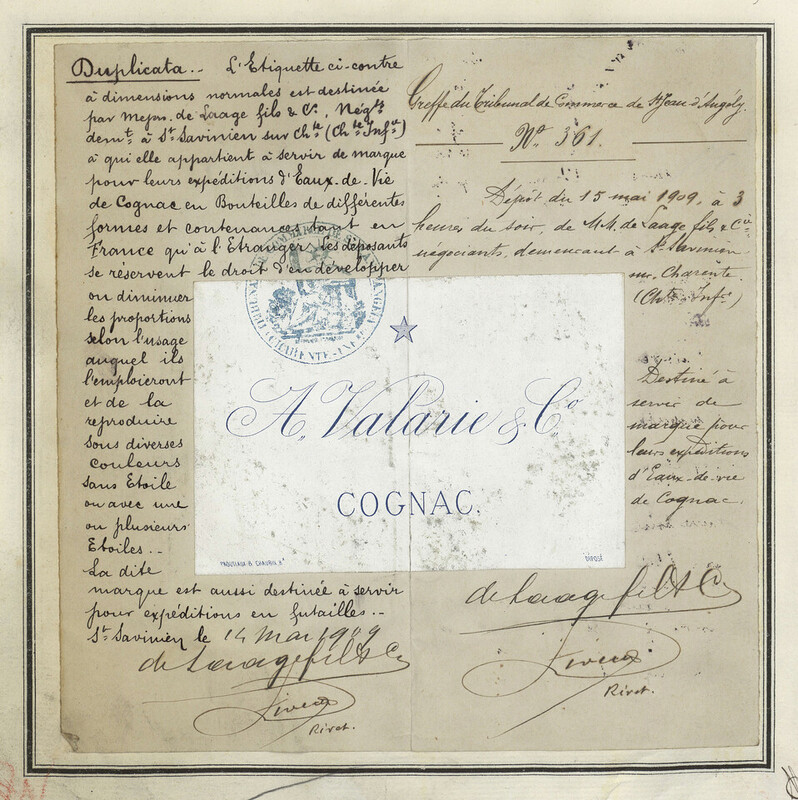 Duplicata.. L'Etiquette ci-contre
à dimensions normales est destinée
par Mess. de Laage fils & Cie, Négts
demt à St Savinien sur Chte (Chte Infre)
à qui elle appartient à servir de marque
pour leurs expéditions d'Eaux-de-Vie
de Cognac en Bouteilles de différentes
formes et contenances tant en
France qu'à l'Etranger, les déposants
se réservent le droit d'en développer
ou diminuer
les proportions
selon l'usage
auquel ils
l'emploieront
et de la
reproduire
sous diverses
couleurs
sans Etoile
ou avec une
ou plusieurs
Etoiles..
La dite
marque est aussi destinée à servir
pour expéditions en futailles..
St Savinien le 14 Mai 1909
de Laage fils & Cie
Rivet.
Greffe du Tribunal de Commerce de St Jean d'Angély.
No 361.
Dépôt du 15 mai 1909, à 3
heures du soir, de M.M. de Laage fils & Cie
négociants, demeurant à St Savinien
sur Charente
(Chte Infre)
Destiné à
servir de
marque pour
leurs expéditions
d'Eaux-de-vie
de Cognac.
de Laage fils & Cie
Rivet.
CHARENTE-INFRE
A. Valarie & Co
COGNAC.
DÉPOSÉ